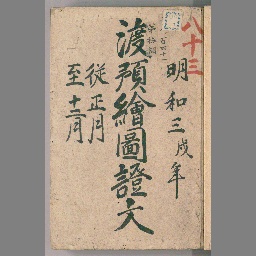 八十三
明和三戌年
渡預繪圖證文
從正月
至十二月